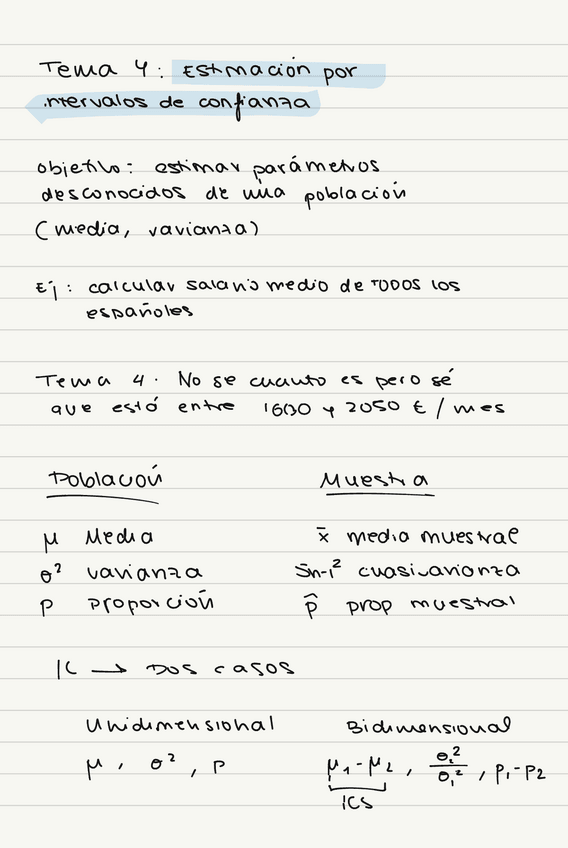 Tema 4: Estimación por
intervalos de confianza
objetivo: estimar parámetros
desconocidos de una población
(media, varianza)
Ej: calcular salario medio de TODOS los
españoles
Tema 4. No se cuanto es pero sé
que está entre 1600 y 2050 € / mes
Población Muestra
μ Media x̄ media muestral
σ² varianza Sn-1² cuasivarianza
p proporción p̂ prop muestral
IC → DOS casos
Unidimensional Bidimensional
μ, σ², p μ1-μ2, σ1²/σ2², p1-p2
ICs